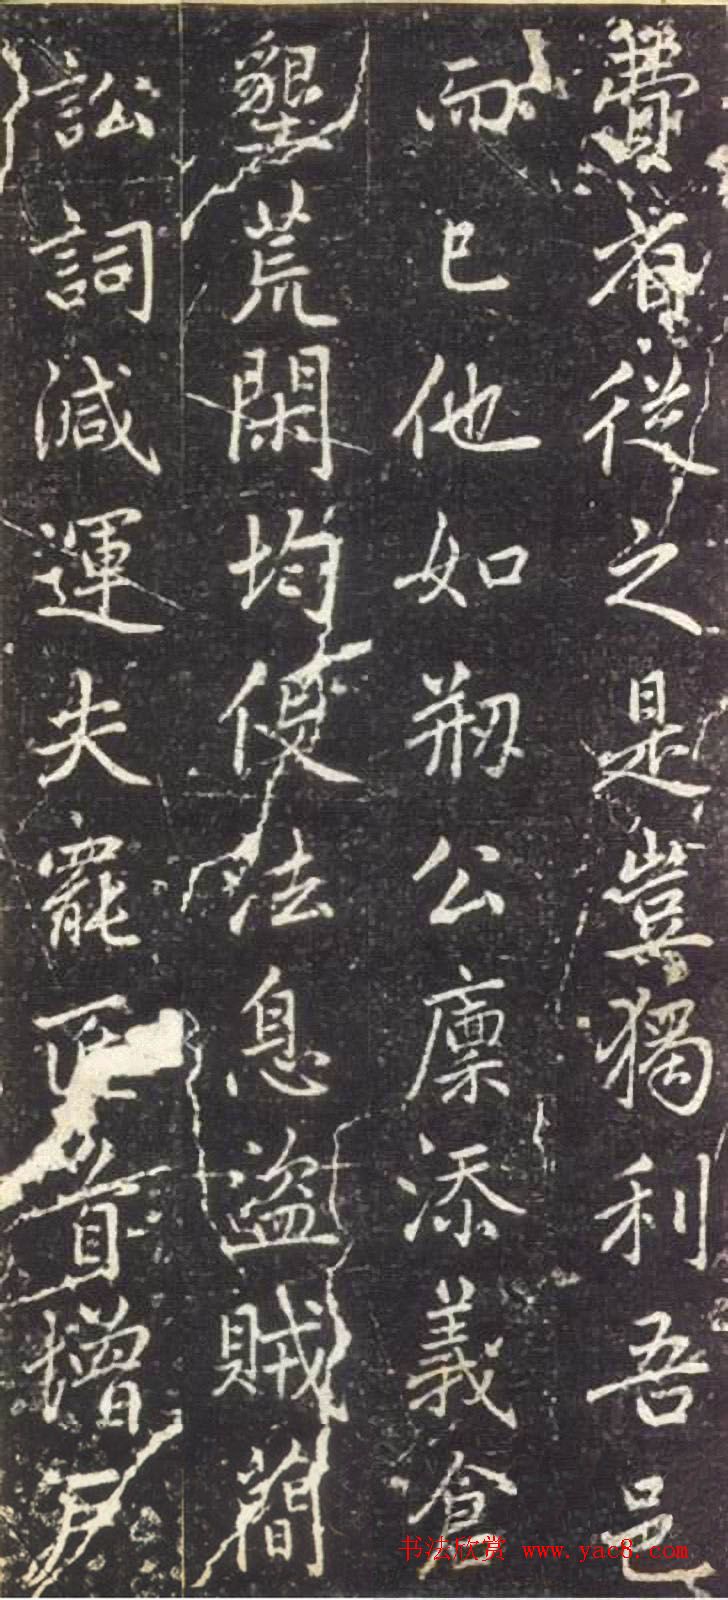 費者從之是豈獨利吾邑
而已他如刱公廩添義倉
墾荒閑均伇法息盜賊蕑
訟詞減運夫罷正首增戶
书法欣赏 www.yac8.com